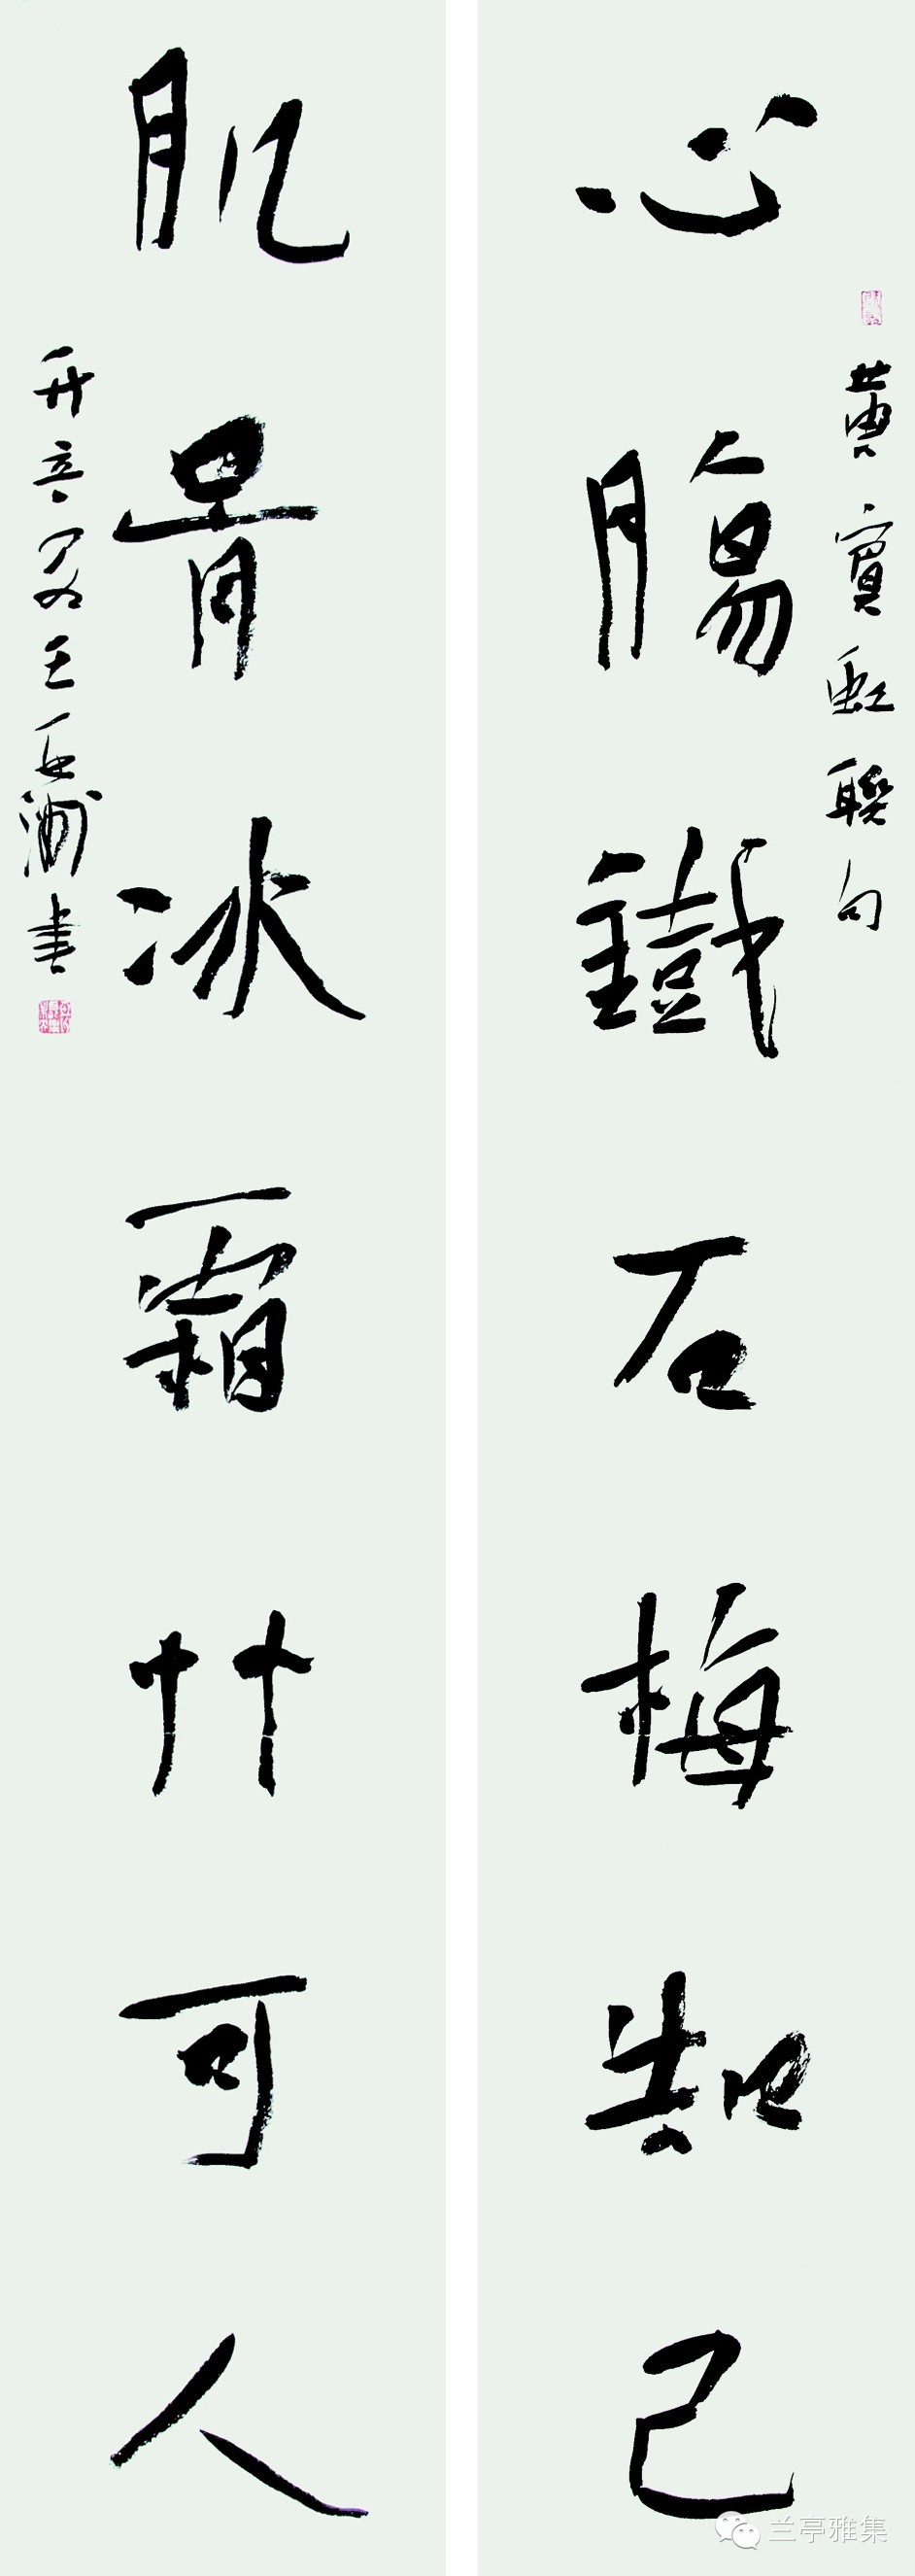 心腸鐵石梅知己
黄賓虹聯句
肌骨冰霜艸可人
王亞洲書
兰亭雅集